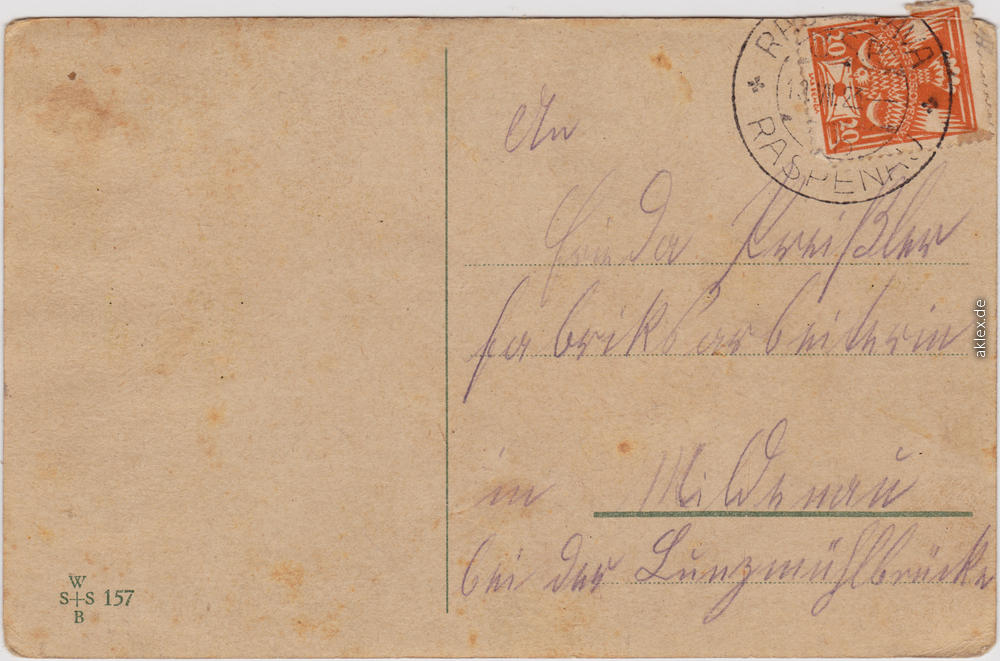 An
Frieda Kreißler
Fabriksarbeiterin
in Mildenau
bei der Lunzmühlbrücke
RASPENAVA
RASPENAU
20
20
W
S+S 157
B
aklex.de